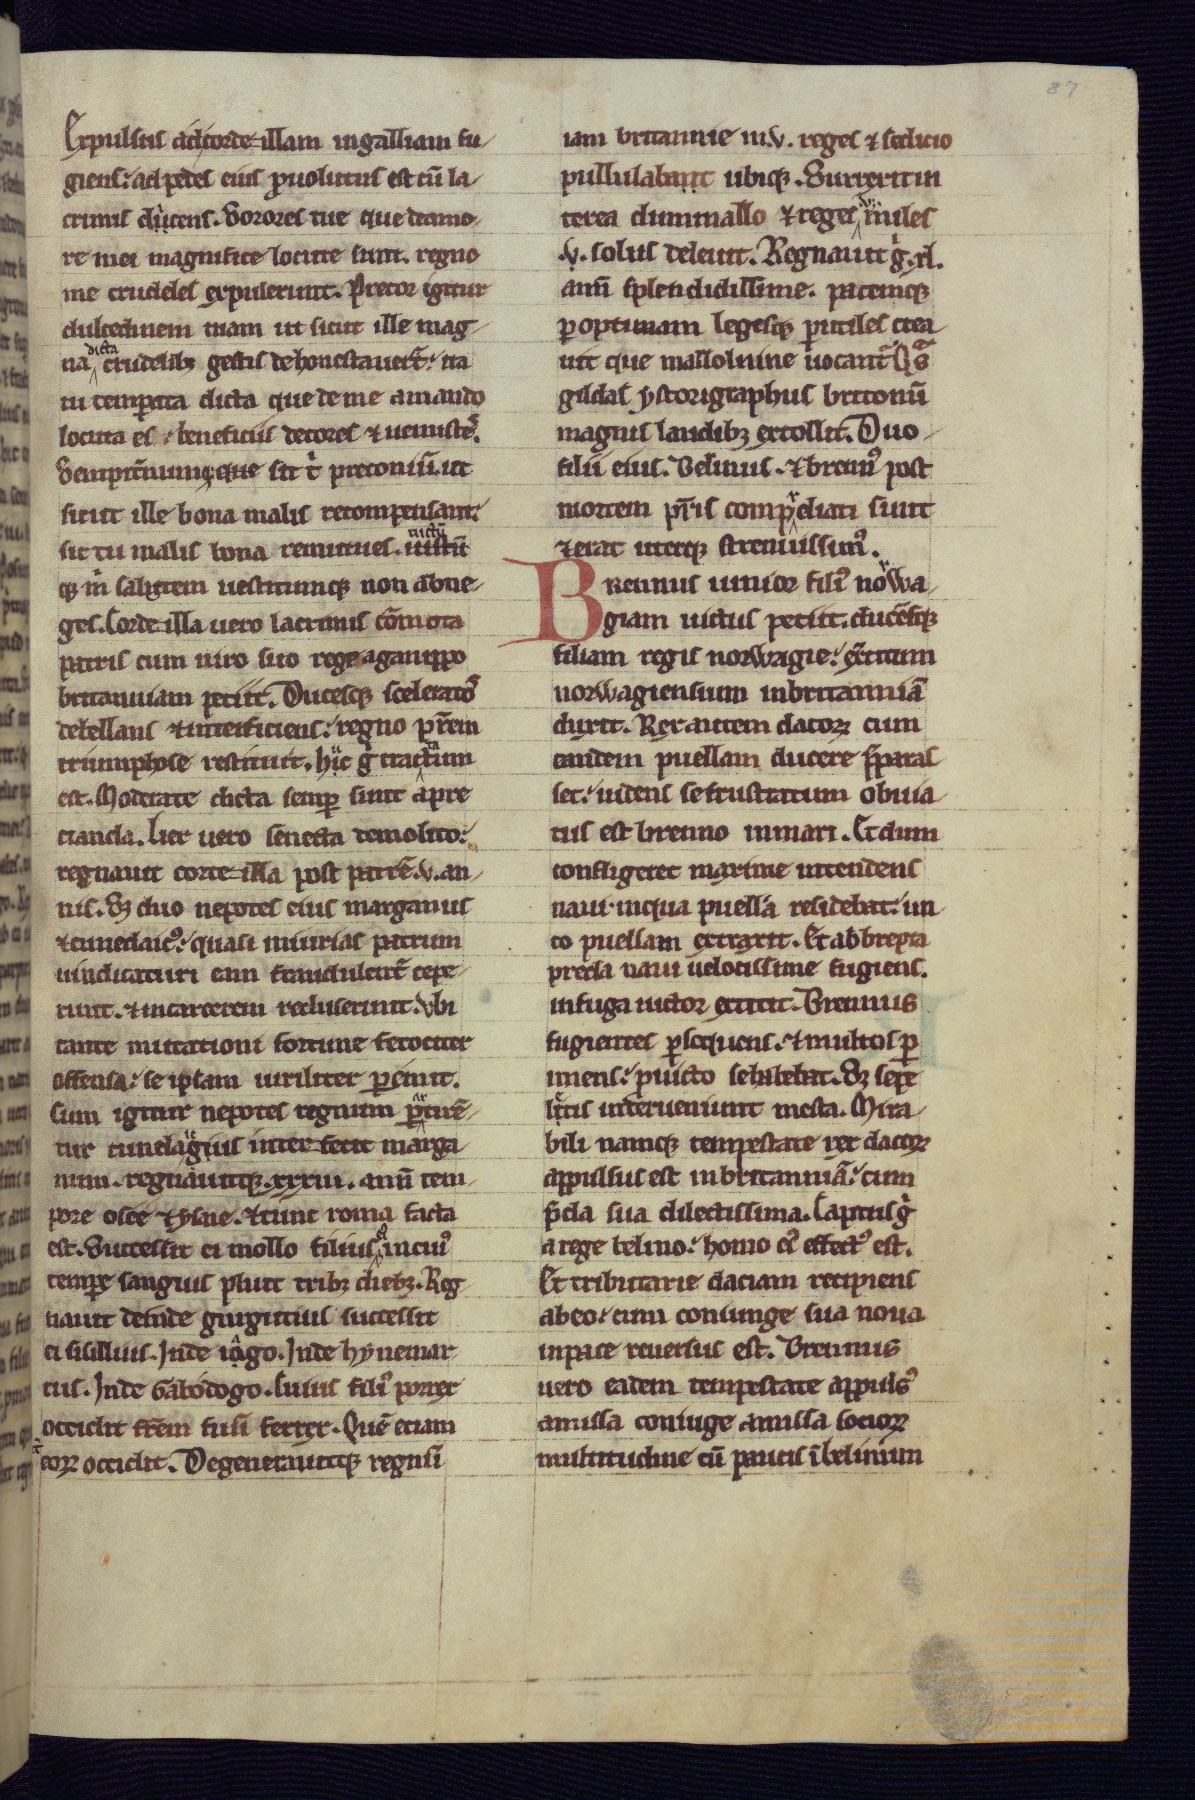 87
Expulsus ad corde illam in galliam fu
giens: ad pedes eius ꝓuolutus est cū la
crimis dicens. Sorores tue que de amo
re mei magnifice locute sunt. regno
me crudeles expulerunt. Precor igitur
dulcedinem tuam ut sicut ille mag
na dicta crudelibꝫ gestis dehonestauert̄: ita
tu temperata dicta que de me amando
locuta es beneficiis decores ⁊ uenustes.
Sempit̄num que sit t̄ preconiū. ut
sicut ille bona malis recompensant:
sic tu malis bona remittues. uictū
qꝫ m̄ saltem uestitumqꝫ non abne
ges. Corde illa uero lacrimis cōmota
patris cum uiro suo rege aganippo
britanniam petiit. Ducesqꝫ sceleratos
debellans ⁊ interficiens: regno pr̄em
triumphose restituit. hic g̊ tractatum
est. Moderate dicta semꝑ sunt apre
cianda. Lier uero senecta demolito:
regnauit corde illa post patrē .v. an
nis. Sꝫ duo nepotes eius marganus
⁊ cunedaicꝰ: quasi iniurias patrum
uindicaturi eam fraudulent̄ cepe
runt. ⁊ in carcerem recluserunt. Vbi
tante mutationi fortune ferociter
offensa: se ipsam uiriliter ꝑemit.
Cum igitur nepotes regnum ꝑtirē
tur cunedagius interfecit marga
num. regnauitqꝫ .xxxiii. ann̄ tem
pore osee ⁊ ysaie. ⁊ tunc roma facta
est. Successit ei mollo filius in cuiꝰ
tempe sanguis pluit tribꝫ diebꝫ. Reg
nauit deinde gurgutius successit
ei sisillius. Inde iago. Inde hynemar
cus. Inde Gabodogo. Cuius filiꝰ porrex
occidit fr̄em suū ferrex. Quē etiam
eoꝝ occidit. Degenerauitqꝫ regnū
iam britannie in .v. reges ⁊ sedicio
pullulabant ubiqꝫ. Surrexit in
terea dunuallo ⁊ reges
.v. solus deleuit. Regnauit g̊ .xl.
ann̄ splendidissime. pacemqꝫ
ꝑ optimam legesqꝫ ꝑutiles crea
uit que mallolmine uocant̄
gildas ystorigraphus britonū
magnis laudibꝫ extollit. Duo
filii eius. Belinus. ⁊ brennꝰ post
mortem pr̄is compdiati sunt
⁊ erat uterqꝫ strenuissimꝰ.
Brennus iunior filiꝰ norwa
giam uictus petiit. ducensqꝫ
filiam regis norwagie: ex̄citum
norwagiensium in britanniā
duxit. Rex autem dacoꝝ cum
eandem puellam ducere p̄paras
set: uidens se frustratum obuia
tus est brenno in mari. Et dum
confligeret maxime intendens
naui in qua puella residebat: un
co puellam extraxit. Et abbrepta
preda naui uelocissime fugiens.
in fuga uictor extitit. Brennus
fugientes ꝑsequens. ⁊ multos ꝑ
imens: ꝓuicto se habebat. Sꝫ sepe
letis interueniunt mesta. Mira
bili namqꝫ tempestate rex dacoꝝ
appulsus est in britanniā: cum
p̄da sua dilectissima. Captus g̊
a rege belino: homo eiꝰ effectꝰ est.
Et tributarie daciam recipiens
ab eo: cum coniunge sua noua
in pace reuersus est. Brennus
uero eadem tempestate appulsꝰ
amissa coniuge amissa socioꝝ
multitudine cū paucis ī belinum